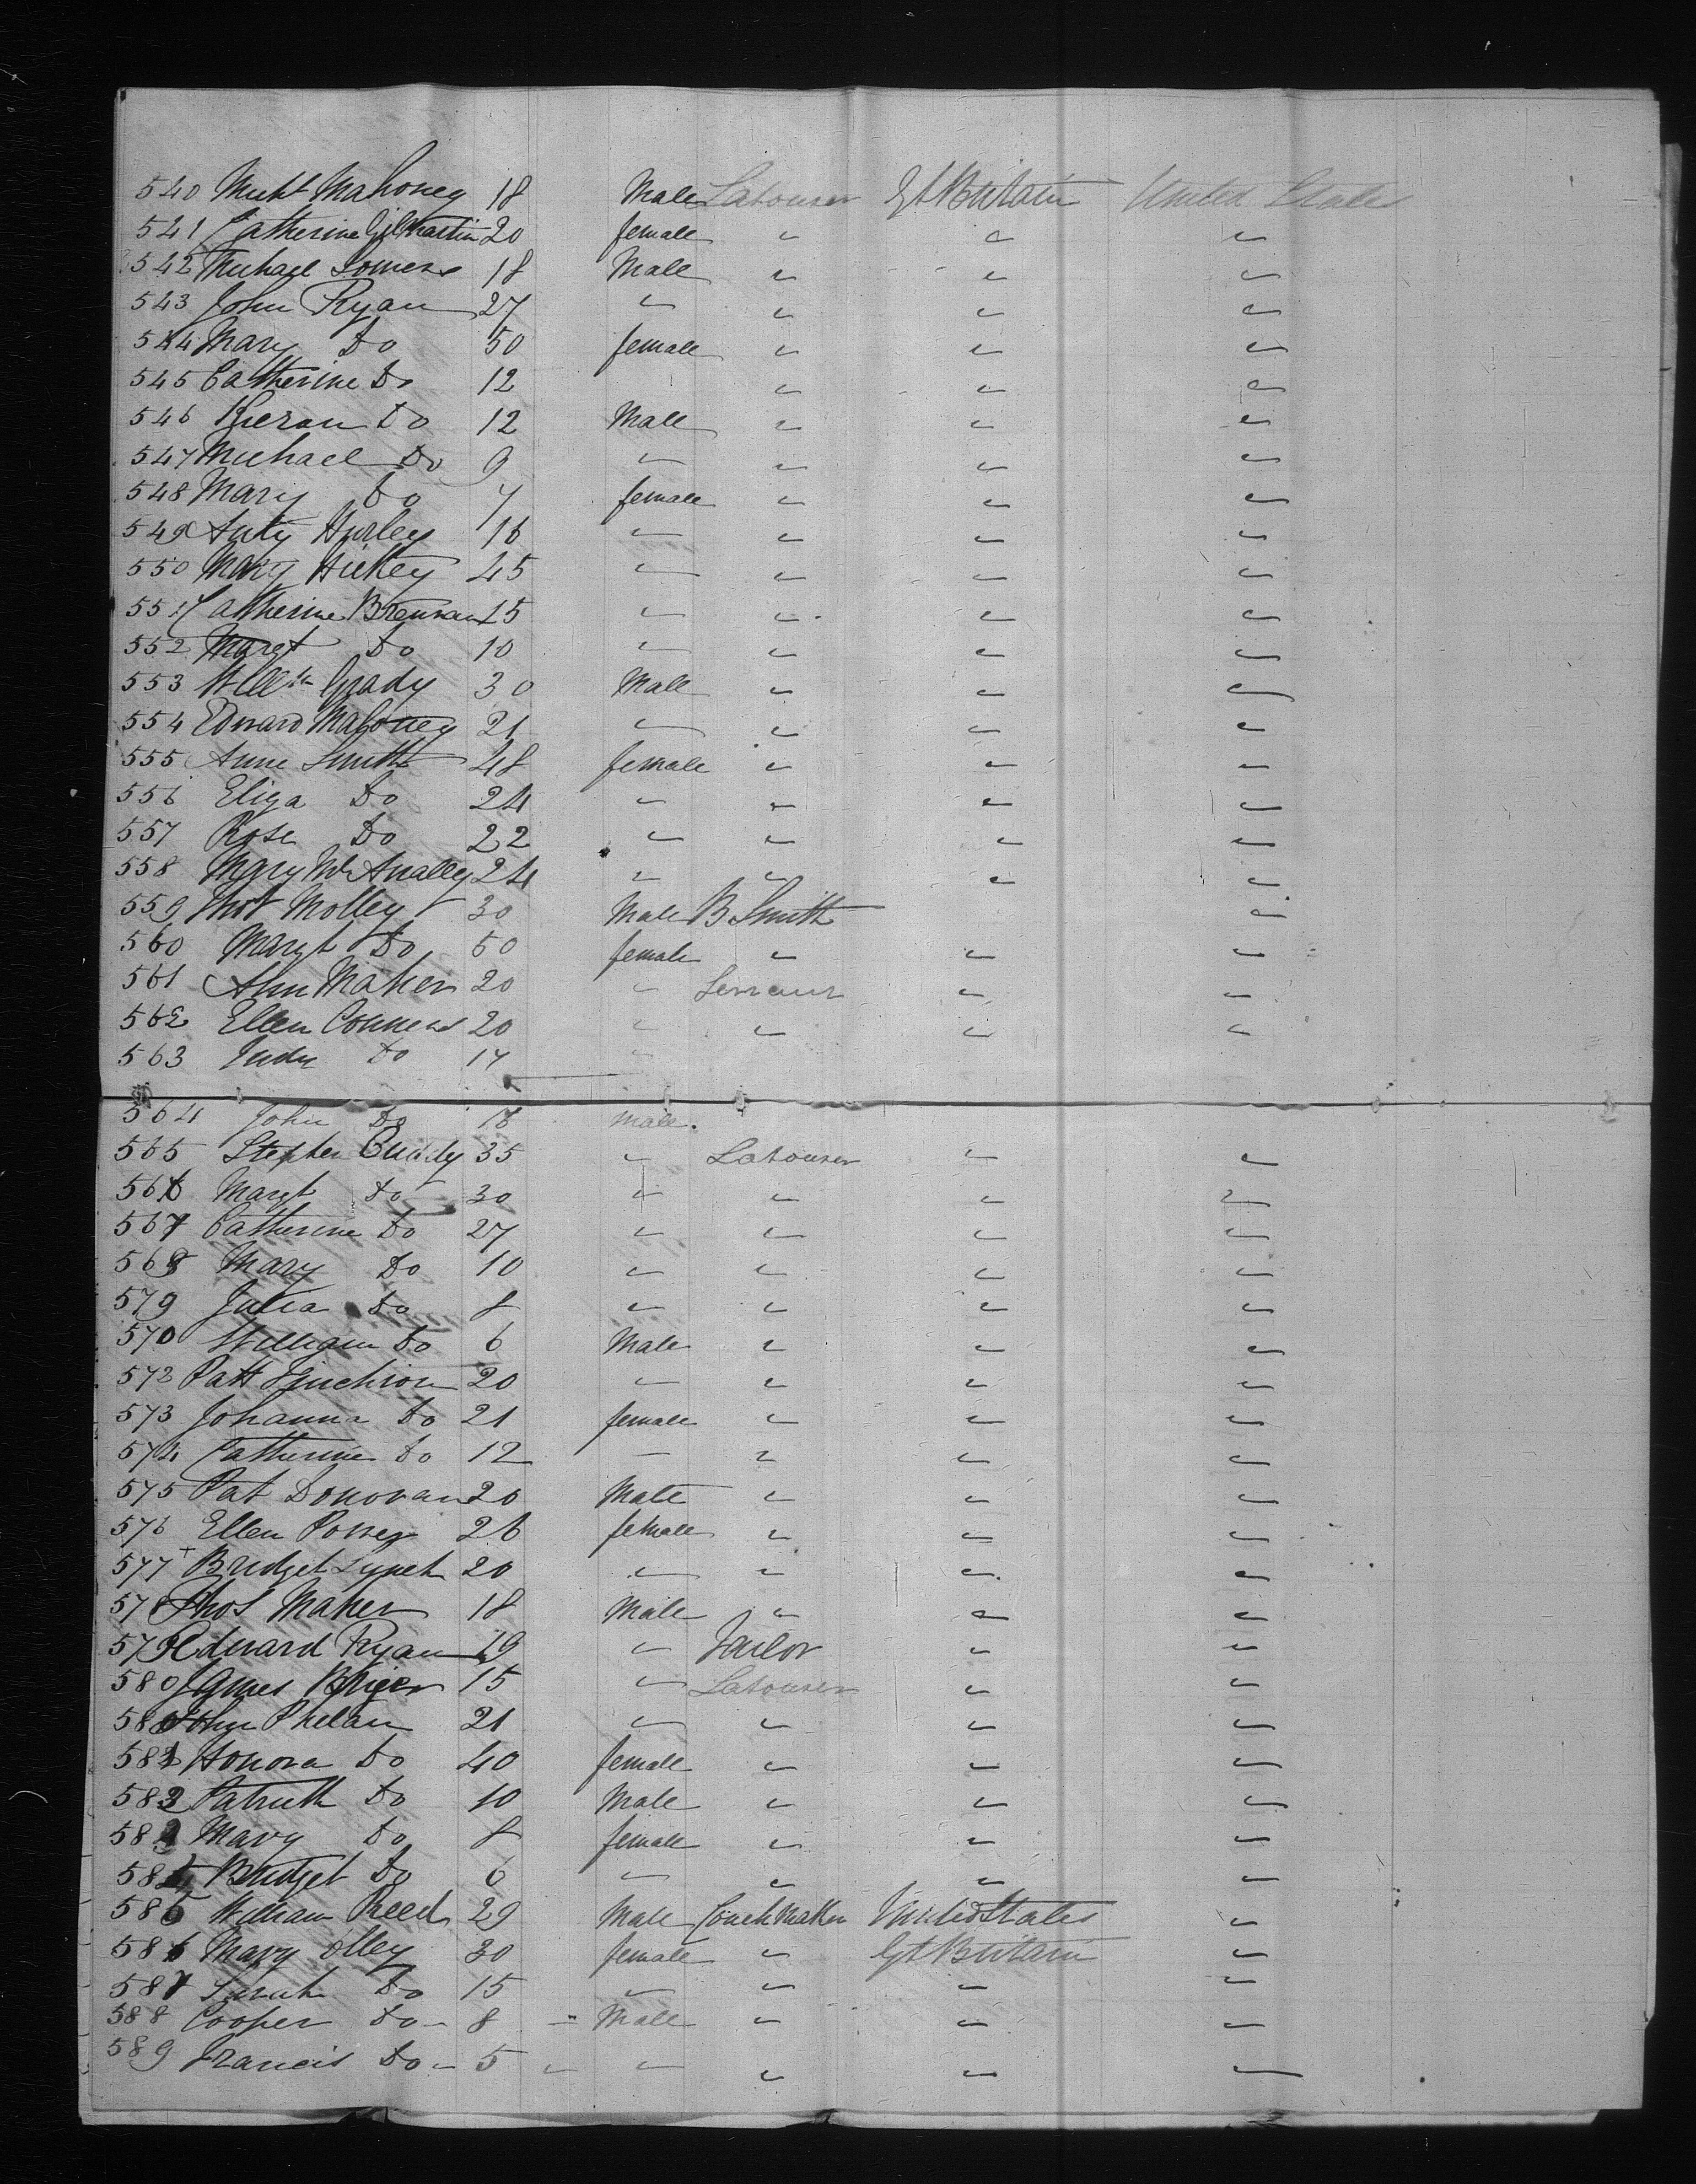 540 Micht Mahoney 18 Male Labourer Gt Britain United States
541 Catherine Gilmartin 20 female " " "
542 Michael Somers 18 Male " " "
543 John Ryan 27 " " " "
544 Mary Do 50 female " " "
545 Catherine Do 12 " " "
546 Kieran Do 12 Male " " "
547 Michael Do 9 " " " "
548 Mary Do 7 female " " "
549 Anty Hurley 16 " " " "
550 Mary Hickey 45 " " " "
551 Catherine Brennan 15 " " " "
552 Margt Do 10 " " " "
553 Willm Grady 30 Male " " "
554 Edward Mahoney 21 " " " "
555 Anne Smith 48 female " " "
556 Eliza Do 24 " " " "
557 Rose Do 22 " " " "
558 Mary McAnally 24 " " " "
559 Molley 30 Male B Smith "
560 Margt Do 50 female " " "
561 Ann Maher 20 " Servant " "
562 Ellen Conners 20 " " " "
563 Judy Do 17 "
564 John Do 18 male
565 Stephen Cuddy 35 " Labourer " "
566 Margt Do 30 " " " "
567 Catherine Do 27 " " " "
568 Mary Do 10 " " " "
579 Julia Do 8 " " " "
570 William Do 6 Male " " "
572 Patt Linchion 20 " " " "
573 Johanna Do 21 female " " "
574 Catherine Do 12 " " " "
575 Pat Donovan 20 Male " " "
576 Ellen Power 26 female " " "
577 Bridget Lynch 20 " " " "
578 Thos Maher 18 Male " " "
579 Edward Ryan 19 " Tailor " "
580 James 15 " Labourer " "
580 John Phelan 21 " " " "
581 Honora Do 40 female " " "
582 Patrick Do 10 Male " " "
583 Mary Do 8 female " " "
584 Bridget Do 6 " " " "
585 William Reed 29 Male Coach Maker United States "
586 Mary Olley 30 female " Gt Britain "
587 Sarah Do 15 " " " "
588 Cooper Do 8 " Male " " "
589 Francis Do 5 " " " " "